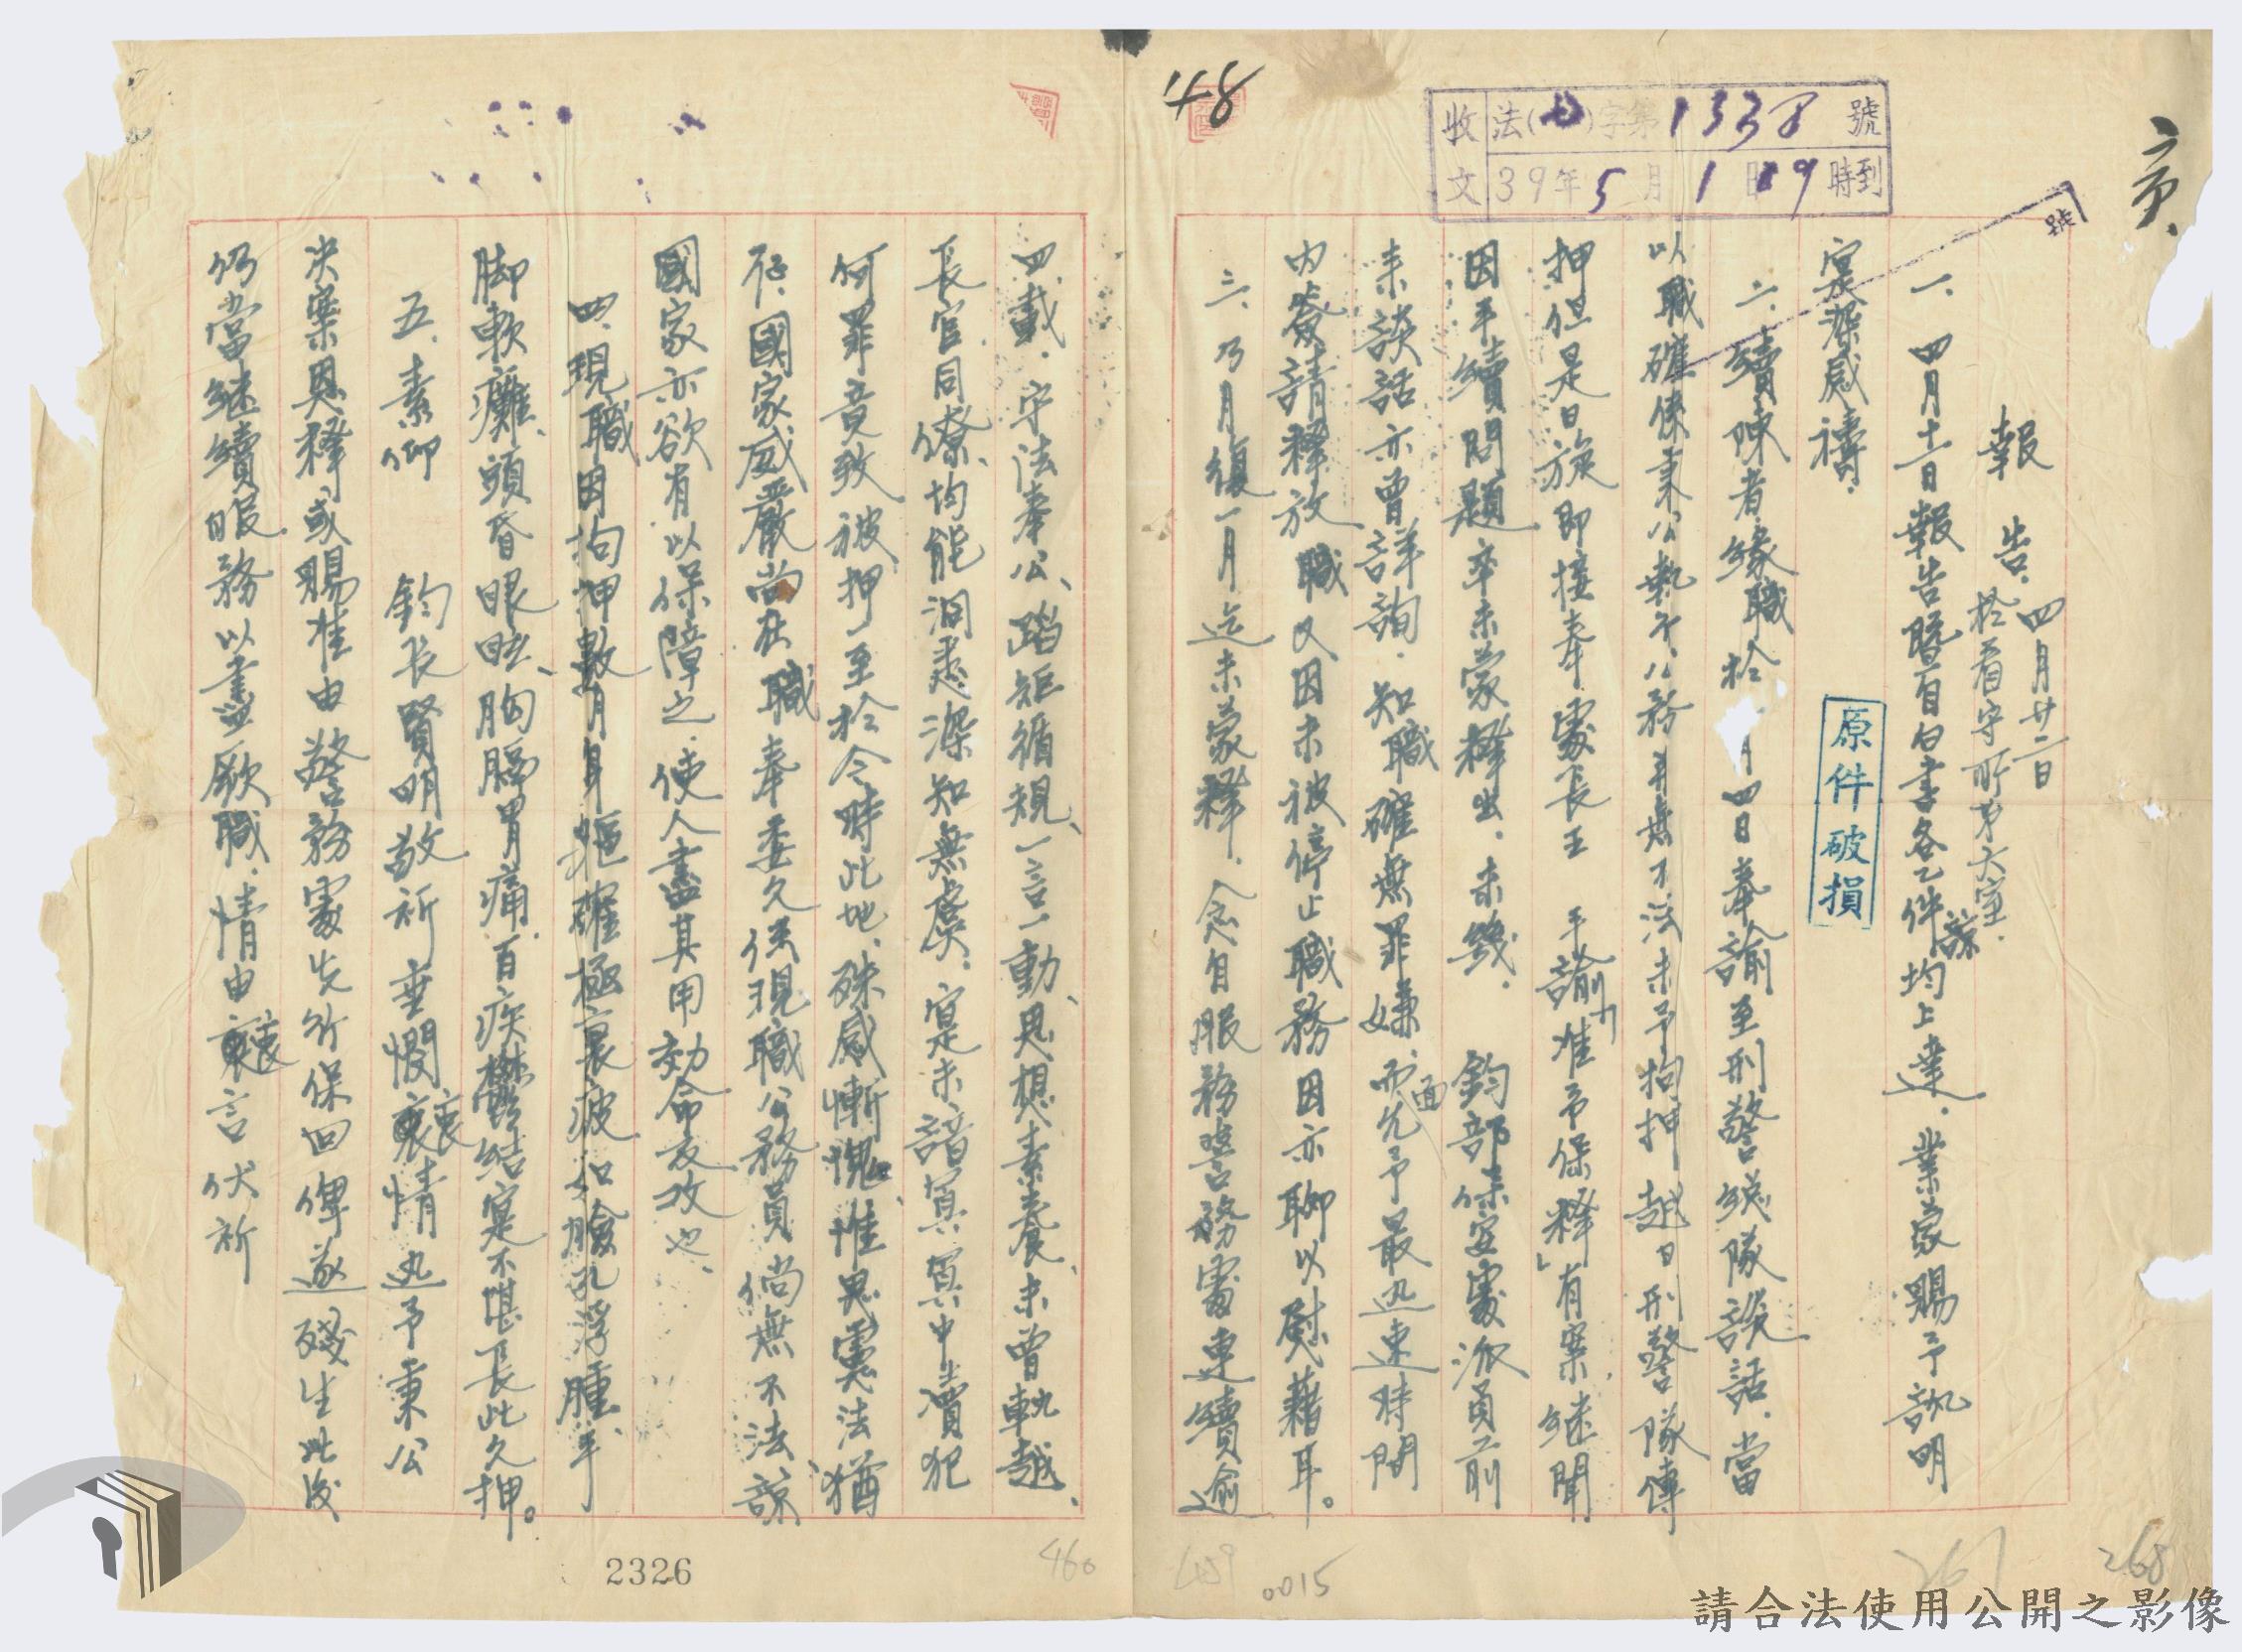 48
收文 法( )字第1338號
39年5月1日19時到
號
報告 四月廿二日
於看守所第六室
一、四月十一日報告暨自白書各乙件諒均上達、業蒙賜予訊明
寔深感禱、
二、續陳者緣職於 月四日奉諭至刑警總隊談話、當
以職確係秉公執行公務並無不法未予拘押越日刑警隊傳
押但是日旋即接奉處長王 手諭「准予保釋」有案継聞
因手續問題卒未蒙釋出、未幾、 鈞部保安處派員前
來談話亦曾詳詢、知職確無罪嫌、而面允予最迅速時間
内簽請釋放職又因未被停止職務因亦聊以慰藉耳。
三、乃月復一月迄未蒙釋、念自服務警務處連續逾
四載、守法奉公、蹈矩循規、一言一動、思想素養、未曾軌越、
長官同僚、均能洞悉深知無虞、寔未諳冥冥中生瀆犯
何罪竟致被押至於今時此地、殊感慚愧、惟思憲法猶
在、國家威嚴尚在職奉委久任現職公務員倘無不法、諒
國家亦欲有以保障之、使人盡其用効命友攻也、
四、現職因拘押數月身軀確極衰疲如臉孔浮腫、手
脚軟癱、頭昏眼眩、胸膈胃痛、百疾欝結寔不堪長此久押。
五、素仰 鈞長賢明敬祈垂憫衷情迅予秉公
決案恩釋或賜准由警務處先行保回俾遂殘生此後
仍當継續服務以盡厥職、情由衷言伏祈
原件破損
2326
460
459
0015
267
268
請合法使用公開之影像